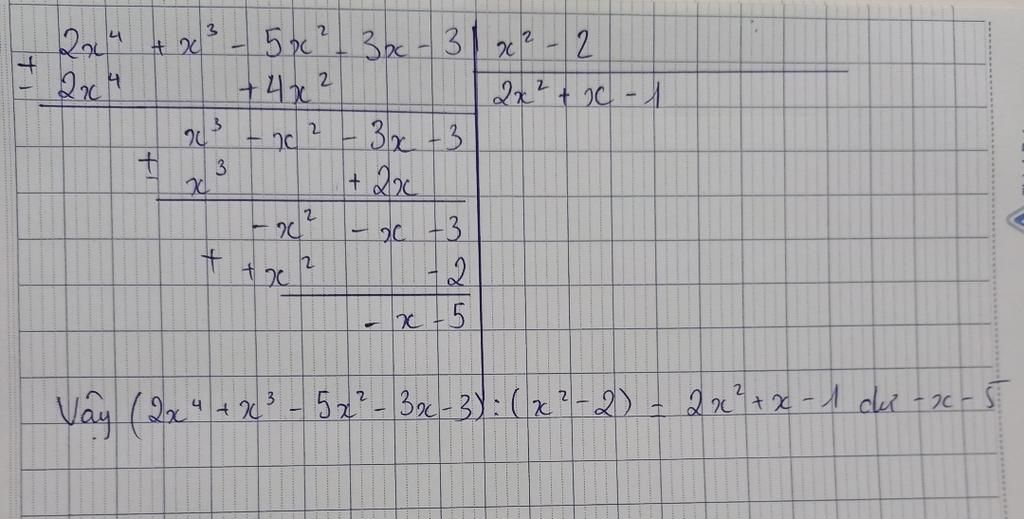 2x⁴ + x³ - 5x² - 3x - 3 | x² - 2
+ - 2x⁴ + 4x² | 2x² + x - 1
x³ - x² - 3x - 3
+ - x³ + 2x
-x² - x - 3
+ +x² - 2
- x - 5
Vậy (2x⁴ + x³ - 5x² - 3x - 3) : (x² - 2) = 2x² + x - 1 dư -x - 5